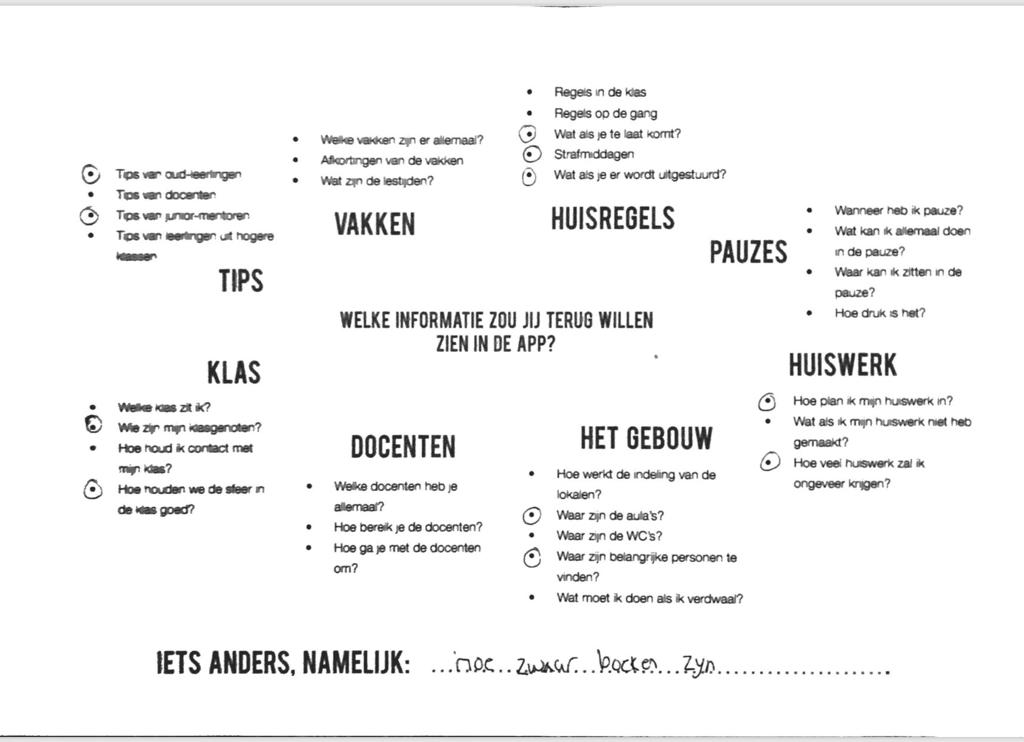 Regels in de klas
Regels op de gang
Wat als je te laat komt?
Strafmiddagen
Wat als je er wordt uitgestuurd?
HUISREGELS
Welke vakken zijn er allemaal?
Afkortingen van de vakken
Wat zijn de lestijden?
VAKKEN
Tips van oud-leerlingen
Tips van docenten
Tips van junior-mentoren
Tips van leerlingen uit hogere
klassen
TIPS
PAUZES
Wanneer heb ik pauze?
Wat kan ik allemaal doen
in de pauze?
Waar kan ik zitten in de
pauze?
Hoe druk is het?
WELKE INFORMATIE ZOU JIJ TERUG WILLEN
ZIEN IN DE APP?
KLAS
Welke klas zit ik?
Wie zijn mijn klasgenoten?
Hoe houd ik contact met
mijn klas?
Hoe houden we de sfeer in
de klas goed?
DOCENTEN
Welke docenten heb je
allemaal?
Hoe bereik je de docenten?
Hoe ga je met de docenten
om?
HET GEBOUW
Hoe werkt de indeling van de
lokalen?
Waar zijn de aula's?
Waar zijn de WC's?
Waar zijn belangrijke personen te
vinden?
Wat moet ik doen als ik verdwaal?
HUISWERK
Hoe plan ik mijn huiswerk in?
Wat als ik mijn huiswerk niet heb
gemaakt?
Hoe veel huiswerk zal ik
ongeveer krijgen?
IETS ANDERS, NAMELIJK: ...hoe...zwaar...boeken...zijn...